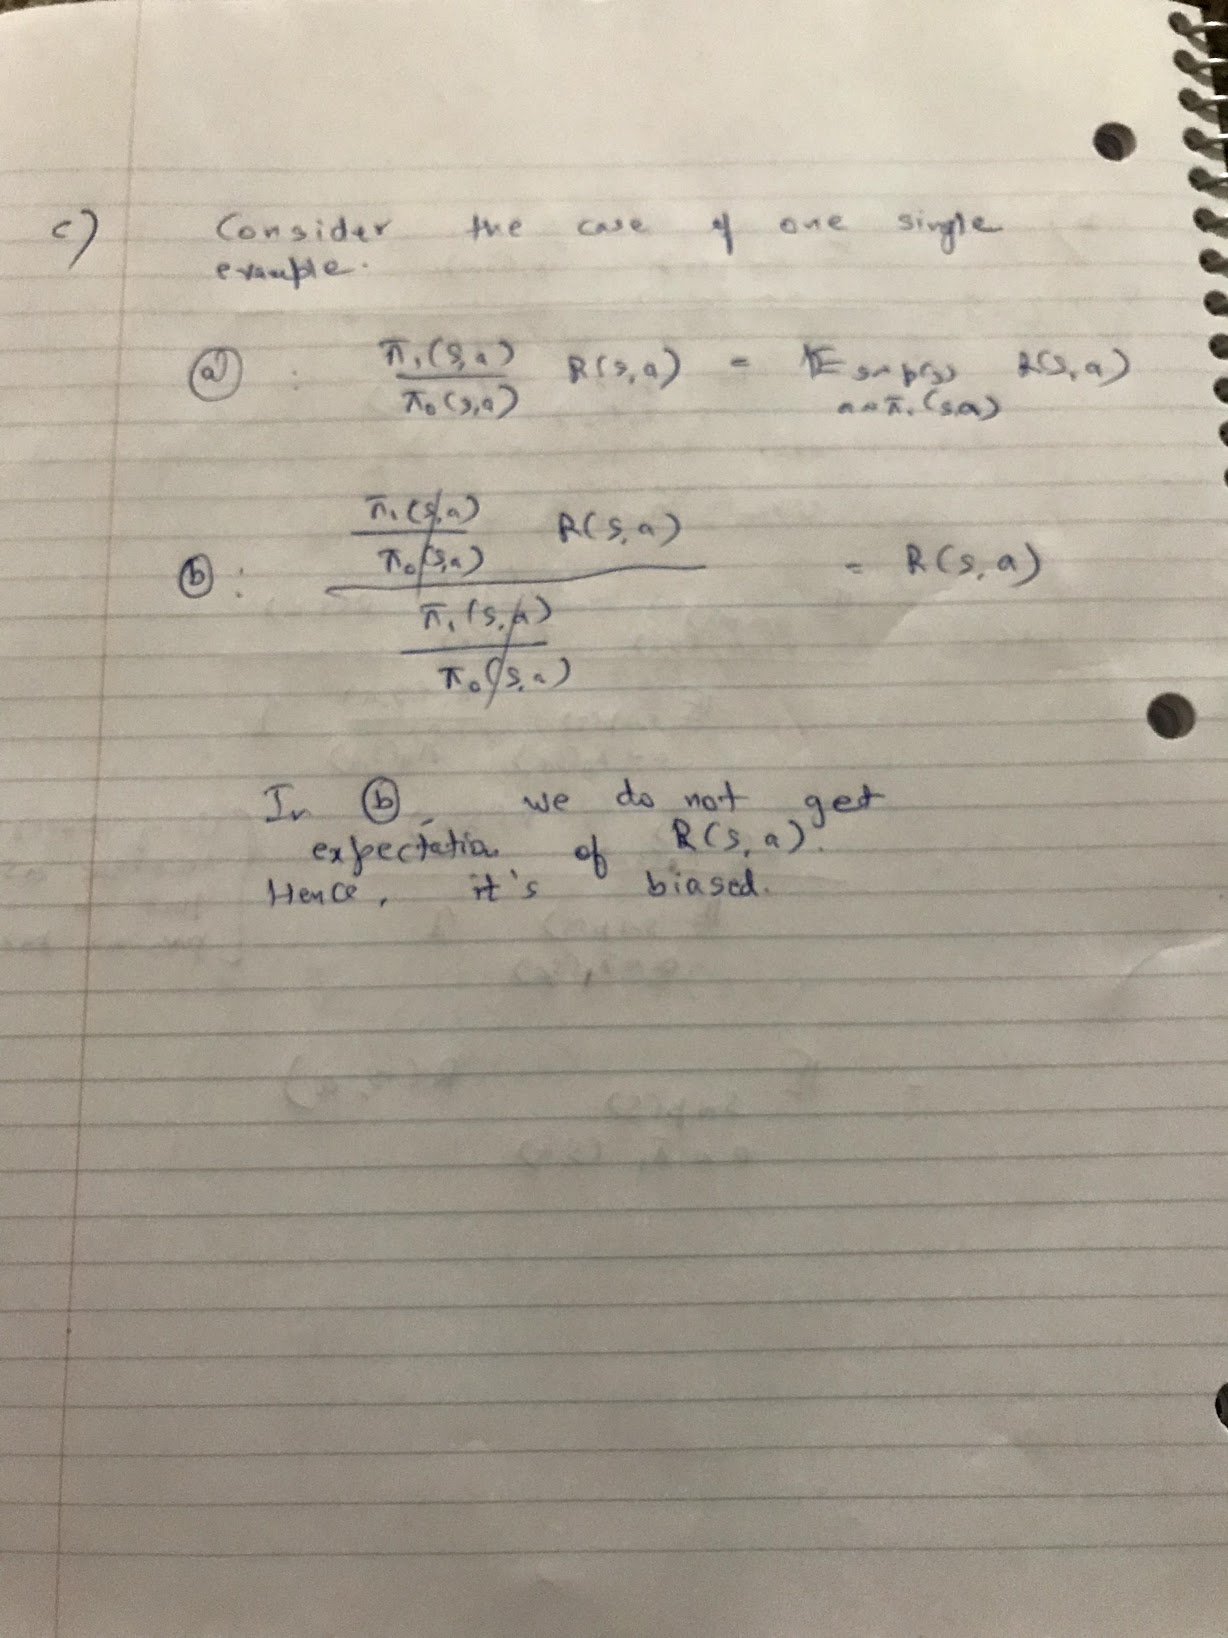 c) Consider the case of one single
example.
ⓐ : π₁(s,a) / π₀(s,a) R(s,a) = 𝔼 s~p(s) R(s,a)
a~π₁(s,a)
ⓑ : π₁(s,a) / π₀(s,a) R(s,a) / π₁(s,a) / π₀(s,a) = R(s,a)
In ⓑ, we do not get
expectation of R(s,a).
Hence, it's biased.